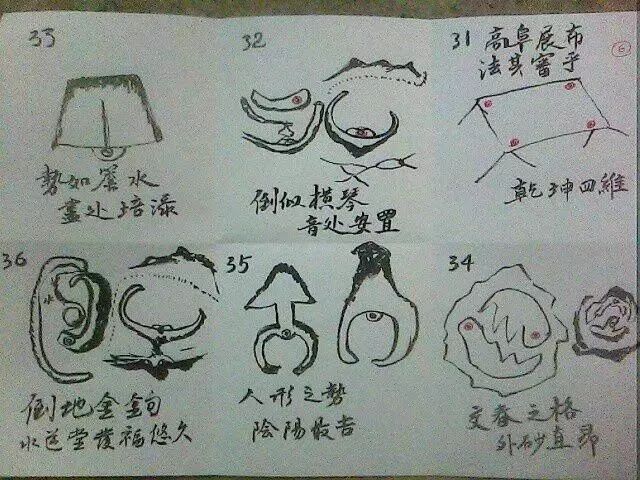 31 高阜展布
法其審乎
⑥
乾坤四維
32
倒似橫琴
音处安置
33
勢如簷水
盡处培滌
34
交眷之格
外砂直昂
35
人形之勢
陰陽最吉
36
水
倒地金鉤
水送堂發福悠久